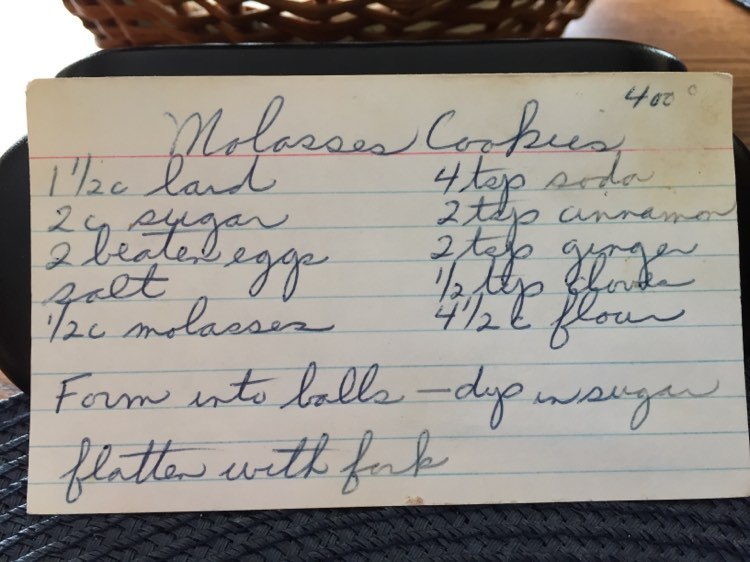 400°
Molasses Cookies
1 1/2 c lard
2 c sugar
2 beaten eggs
salt
1/2 c molasses
4 tsp soda
2 tsp cinnamon
2 tsp ginger
1/2 tsp cloves
4 1/2 c flour
Form into balls – dip in sugar
flatten with fork